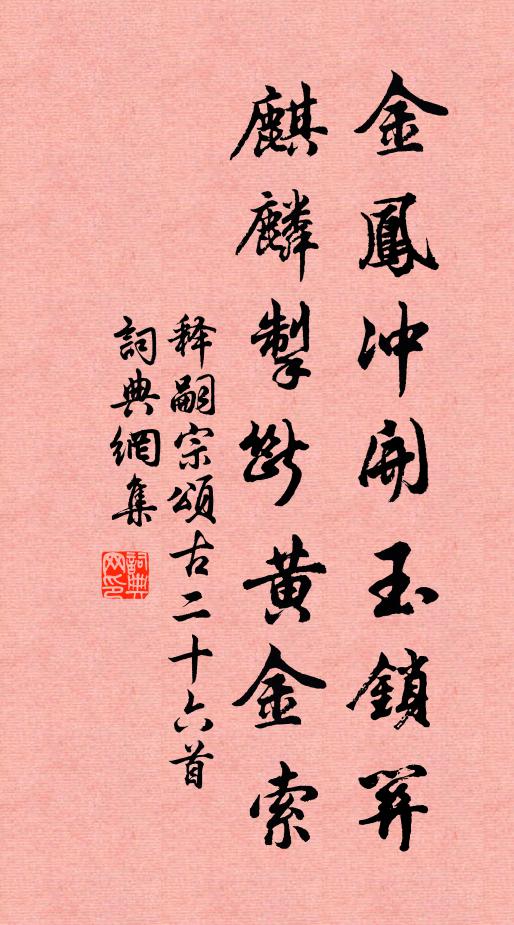 金鳳冲開玉鎖關
麒麟掣斷黃金索
释嗣宗頌古二十六首
詞典網集
詞典网印